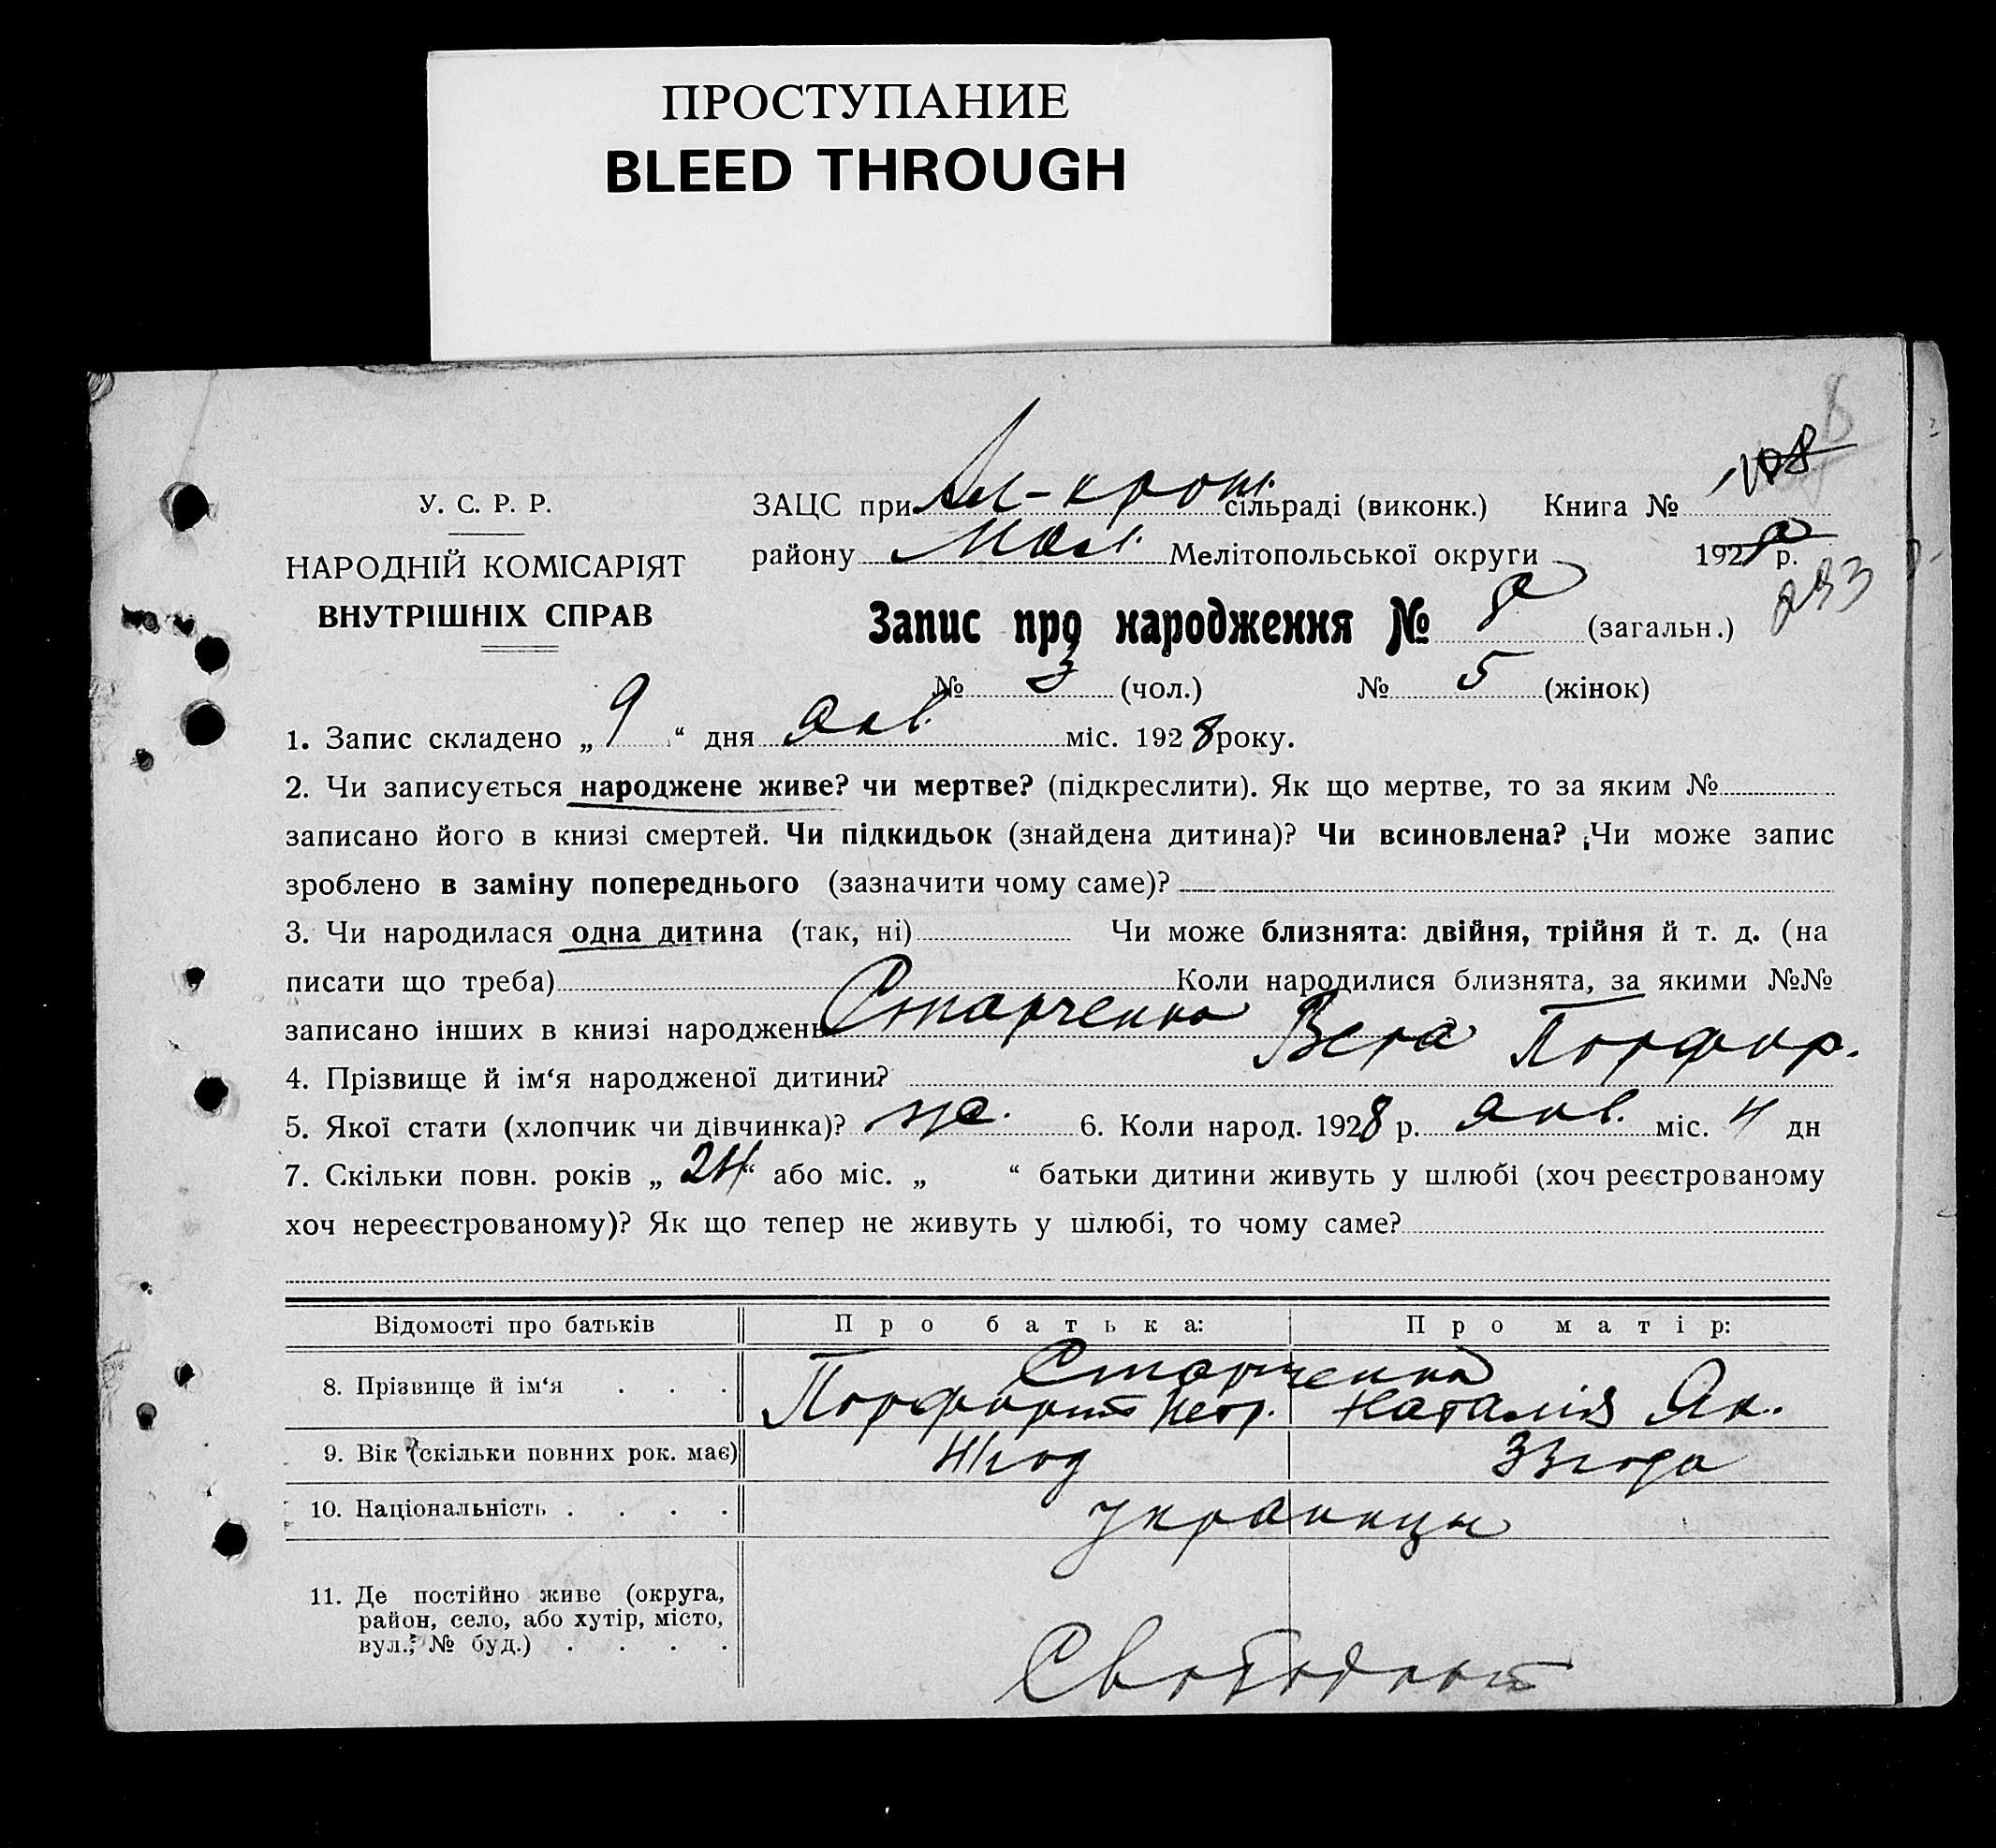 ПРОСТУПАНИЕ
BLEED THROUGH
У. С. Р. Р.
НАРОДНІЙ КОМІСАРІЯТ
ВНУТРІШНІХ СПРАВ
ЗАЦС при сільраді (виконк.) Книга №
району Мелітопольської округи 192 р.
Запис про народження № 8 (загальн.)
№ 3 (чол.) № 5 (жінок)
1. Запис складено „ 9 “ дня янв. міс. 1928 року.
2. Чи записується народжене живе? чи мертве? (підкреслити). Як що мертве, то за яким №
записано його в книзі смертей. Чи підкидьок (знайдена дитина)? Чи всиновлена? Чи може запис
зроблено в заміну попереднього (зазначити чому саме)?
3. Чи народилася одна дитина (так, ні) Чи може близнята: двійня, трійня й т. д. (на
писати що треба) Коли народилися близнята, за якими №№
записано інших в книзі народжень
Старченко Вера Порфир.
4. Прізвище й ім‘я народженої дитини?
5. Якої стати (хлопчик чи дівчинка)? же. 6. Коли народ. 1928 р. янв. міс. 4 дн
7. Скільки повн. років „ 24 “ або міс. „ “ батьки дитини живуть у шлюбі (хоч реєстрованому
хоч нереєстрованому)? Як що тепер не живуть у шлюбі, то чому саме?
Відомості про батьків Про батька: Про матір:
Старченко
8. Прізвище й ім‘я . . . Порфирий Петр. Наталия Як.
9. Вік (скільки повних рок. має) 41 год 33 года
10. Національність . . . . украинцы
11. Де постійно живе (округа,
район, село, або хутір, місто,
вул., № буд.) . . . .